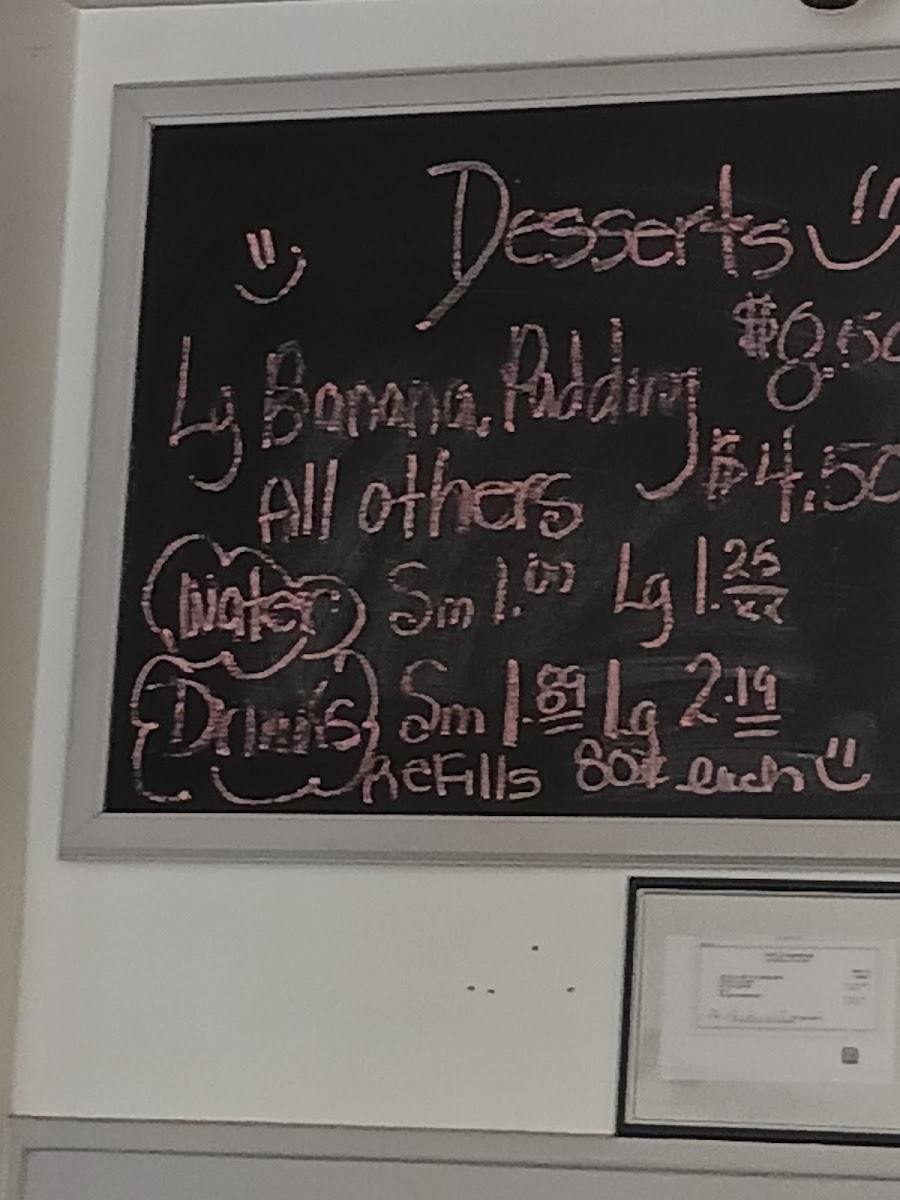 Desserts
$8.50
Lg Banana Pudding
All others $4.50
Water Sm 1.00 Lg 1.25
Drinks Sm 1.89 Lg 2.19
Refills 80¢ each